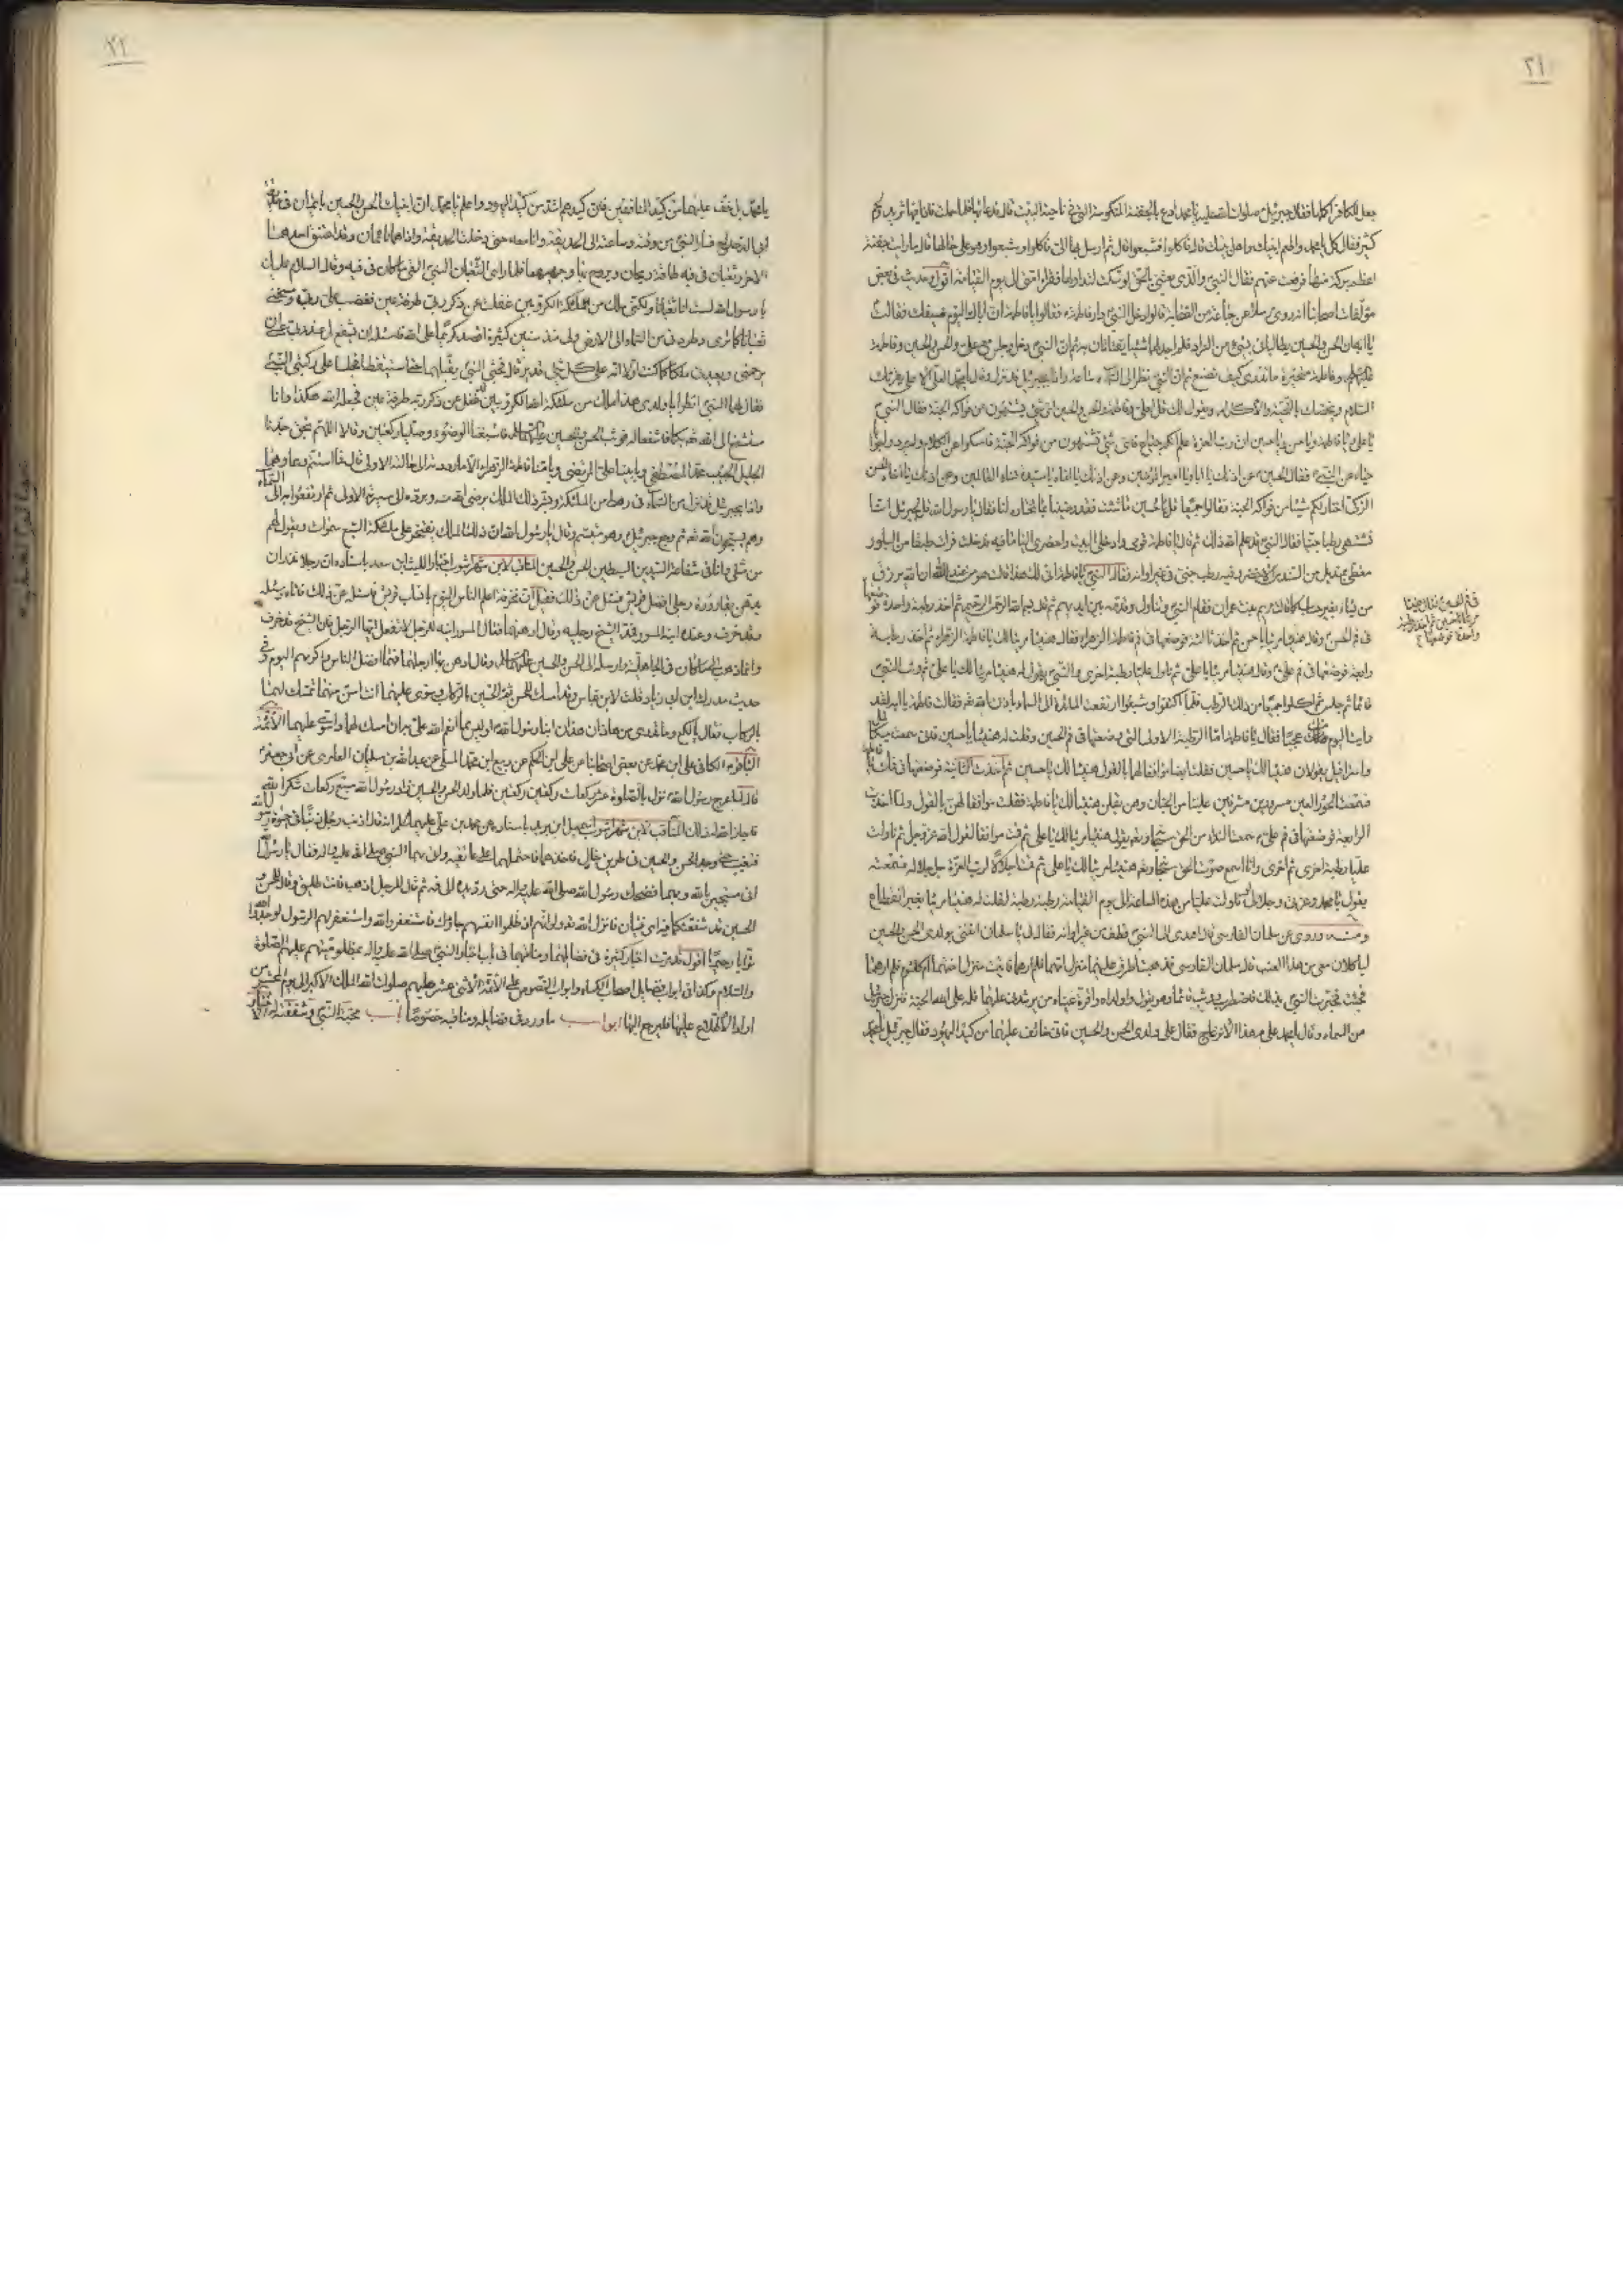 ٢١
جعل للكافر أكلها فقال جبرئيل صلوات الله عليه يا محمد ادع بالجفنة المنكوسة التي في ناحية البيت قال فدعا بها فلما حملت فاذا فيها ثريد ولحم
كثير فقال كل يا محمد واطعم ابنيك واهل بيتك قال فاكلوا فشبعوا قال ثم ارسل بها الى فاكلوا وشبعوا وهو على حالها قال ما رايت جفنة
اعظم بركة منها فرفعت عنهم فقال النبي والذي بعثني بالحق لو سكت لتداولها فقراء امتي الى يوم القيامة اقول وحديث في بعض
مؤلفات اصحابنا انه روى مرسلا عن جماعة من الصحابة قالوا دخل النبي دار فاطمة فقال يا فاطمة ان اباك اليوم ضيفك فقالت
يا ابة ان الحسن والحسين يطالباني بشيء من الزاد فلم اجد لهما شيئا يقتاتان به ثم ان النبي دخل وجلس مع علي والحسن والحسين وفاطمة
عليهم وفاطمة متحيرة ما تدري كيف تصنع ثم ان النبي نظر الى السماء ساعة واذا بجبرئيل قد نزل وقال يا محمد العلي الاعلى يقرئك
السلام ويخصك بالتحية والاكرام ويقول لك قل لعلي وفاطمة والحسن والحسين اي شيء يشتهون من فواكه الجنة فقال النبي
يا علي ويا فاطمة ويا حسن ويا حسين ان رب العزة علم انكم جياع فاي شيء تشتهون من فواكه الجنة فامسكوا عن الكلام ولم يردوا جوابا
حياء من النبي فقال الحسين عن اذنك يا اباه يا امير المؤمنين وعن اذنك يا اماه يا سيدة نساء العالمين وعن اذنك يا اخاه الحسن
الزكي اختار لكم شيئا من فواكه الجنة فقالوا جميعا قل يا حسين ما شئت فقد رضينا بما تختاره لنا فقال يا رسول الله قل لجبرئيل انا
نشتهي رطبا جنيا فقال النبي قد علم الله ذلك ثم قال يا فاطمة قومي وادخلي البيت واحضري الينا ما فيه فدخلت فرات طبقا من البلور
مغطى بمنديل من السندس الاخضر وفيه رطب جني في غير اوانه فقال النبي يا فاطمة انى لك هذا قالت هو من عند الله ان الله يرزق
من يشاء بغير حساب كما قالت مريم بنت عمران فقام النبي وتناوله وقدمه بين ايديهم ثم قال بسم الله الرحمن الرحيم ثم اخذ رطبة واحدة فوضعها
في فم الحسن وقال هنيئا مريئا يا حسن ثم اخذ ثالثة فوضعها في فم فاطمة الزهراء فقال هنيئا مريئا لك يا فاطمة الزهراء ثم اخذ رطبة
رابعة فوضعها في فم علي وقال هنيئا مريئا يا علي ثم ناول عليا رطبة اخرى والنبي يقول له هنيئا مريئا لك يا علي ثم وثب النبي
قائما ثم جلس ثم اكلوا جميعا من ذلك الرطب فلما اكتفوا وشبعوا ارتفعت المائدة الى السماء باذن الله تعالى فقالت فاطمة يا ابه لقد
رايت اليوم منك عجبا فقال يا فاطمة اما الرطبة الاولى التي وضعتها في فم الحسين وقلت له هنيئا يا حسين فاني سمعت ميكائيل
واسرافيل يقولان هنيئا لك يا حسين فقلت ايضا موافقا لهما بالقول هنيئا لك يا حسين ثم اخذت الثانية فوضعتها في فم
فسمعت الحور العين مسرورين مشرفين علينا من الجنان وهن يقلن هنيئا لك يا فاطمة فقلت موافقا لهن بالقول ولما اخذت
الرابعة فوضعتها في فم علي سمعت النداء من الحق سبحانه وتعالى يقول هنيئا مريئا لك يا علي ثم قمت موافقا لقول الله عز وجل ثم ناولت
عليا رطبة اخرى ثم اخرى وانا اسمع صوت الحق سبحانه وتعالى هنيئا مريئا لك يا علي ثم قمت اجلالا لرب العزة جل جلاله فسمعته
يقول يا محمد وعزتي وجلالي لو ناولت عليا من هذه الساعة الى يوم القيامة رطبة رطبة لقلت له هنيئا مريئا بغير انقطاع
ومنه وروى عن سلمان الفارسي قال اهدي الى النبي قطف من عنب في غير اوانه فقال لي يا سلمان ائتني بولدي الحسن والحسين
لياكلان معي من هذا العنب قال سلمان الفارسي فذهبت اطرق عليهما منزل امهما فلم ارهما فاتيت منزل اختهما ام كلثوم فلم ارهما
فجئت فخبرت النبي بذلك فاضطرب ووثب قائما وهو يقول وا ولداه وا قرة عيناه من يرشدني عليهما فله على الله الجنة فنزل جبرئيل
من السماء وقال يا محمد علام هذا الانزعاج فقال على ولدي الحسن والحسين فاني خائف عليهما من كيد اليهود فقال جبرئيل يا محمد
في فم الحسين فقال هنيئا
مريئا يا حسين ثم اخذ رطبة
واحدة فوضعها
٢٢
يا محمد بل خف عليهما من كيد المنافقين فان كيدهم اشد من كيد اليهود واعلم يا محمد ان ابنيك الحسن والحسين نائمان في حديقة
ابي الدحداح فسار النبي من وقته وساعته الى الحديقة وانا معه حتى دخلنا الحديقة واذا هما نائمان وقد اعتنق احدهما
الاخر وثعبان في فيه طاقة ريحان ويروح بها وجهيهما فلما راى الثعبان النبي القى ما كان في فيه وقال السلام عليك
يا رسول الله لست انا ثعبانا ولكني ملك من ملائكة الكروبيين غفلت عن ذكر ربي طرفة عين فغضب علي ربي ومسخني
ثعبانا كما ترى وطردني من السماء الى الارض ولي منذ سنين كثيرة اقصد كريما على الله فاسئله ان يشفع لي عند ربي عسى ان
يرحمني ويعيدني ملكا كما كنت اولا انه على كل شيء قدير قال فجثى النبي يقبلهما حتى استيقظا فجلسا على ركبتي النبي
فقال لهما النبي انظرا يا ولدي هذا ملك من ملائكة الله الكروبيين قد غفل عن ذكر ربه طرفة عين فجعله الله هكذا وانا
مستشفع الى الله بكما فاشفعا له فوثب الحسن والحسين عليهما السلام فاسبغا الوضوء وصليا ركعتين وقالا اللهم بحق جدنا
الجليل الحبيب محمد المصطفى وبابينا علي المرتضى وبامنا فاطمة الزهراء الا ما رددته الى حالته الاولى قال فما استتم دعاءهما
واذا بجبرئيل قد نزل من السماء في رهط من الملائكة وبشر ذلك الملك برضى الله عنه وبرده الى سيرته الاولى ثم ارتفعوا به الى السماء
وهم يسبحون الله تعالى ثم رجع جبرئيل وهو متبسم وقال يا رسول الله ان ذلك الملك يفتخر على ملائكة السبع سموات ويقول لهم
من مثلي وانا في شفاعة السيدين السبطين الحسن والحسين المناقب لابن شهر اشوب اخبار الليث ابن سعد باسناده ان رجلا نذر ان
يدهن بقارورة رجلي افضل قريش فسئل عن ذلك فقيل ان مخرمة اعلم الناس اليوم بانساب قريش فاسئله عن ذلك فاتاه وسئله
وقد خرف وعنده ابنه المسور فمد الشيخ رجليه وقال ادهنهما فقال المسور ابنه للرجل لا تفعل ايها الرجل فان الشيخ قد خرف
وانما ذهب الى ما كان في الجاهلية وارسله الى الحسن والحسين عليهما السلام وقال ادهن بها ارجلهما فهما افضل الناس واكرمهم اليوم وفي
حديث مدرك ابن ابي زياد قلت لابن عباس وقد امسك للحسن ثم الحسين بالركاب وسوى عليهما انت اسن منهما تمسك لهما
بالركاب فقال يا لكع وما تدري من هذان هذان ابنا رسول الله او ليس مما انعم الله علي به ان امسك لهما واسوي عليهما الائمة
الباقر الكافي علي ابن محمد عن بعض اصحابنا عن علي ابن الحكم عن ربيع ابن محمد المسلي عن عبد الله بن سليمان العامري عن ابي جعفر
قال لما عرج برسول الله نزل بالصلوة عشر ركعات ركعتين ركعتين فلما ولد الحسن والحسين زاد رسول الله سبع ركعات شكرا لله
فاجاز الله له ذلك المناقب لابن شهر اشوب باسناده عن محمد بن علي عليهما السلام انه قال اذنب رجل ذنبا في حيوة رسول الله
فتغيب حتى وجد الحسن والحسين في طريق خال فاخذهما فاحتملهما على عاتقيه واتى بهما النبي صلى الله عليه واله فقال يا رسول الله
اني مستجير بالله وبهما فضحك رسول الله صلى الله عليه واله حتى رد يده الى فمه ثم قال للرجل اذهب فانت طليق وقال للحسن و
الحسين قد شفعتكما فيه اي فتيان فانزل الله تعالى ولو انهم اذ ظلموا انفسهم جاؤك فاستغفروا الله واستغفر لهم الرسول لوجدوا الله
توابا رحيما اقول قد مرت اخبار كثيرة في فضائلهما ومناقبهما في باب اخبار النبي صلى الله عليه واله بمظلوميتهم عليهم الصلوة
والسلام وكذا في ابواب فضايل اصحاب الكساء وابواب النصوص على الائمة الاثنى عشر عليهم صلوات الله الملك الاكبر الى يوم المحشر من
اراد الاطلاع عليها فليرجع اليها ابواب ما ورد في فضايله ومناقبه خصوصا باب محبة النبي وشفقته